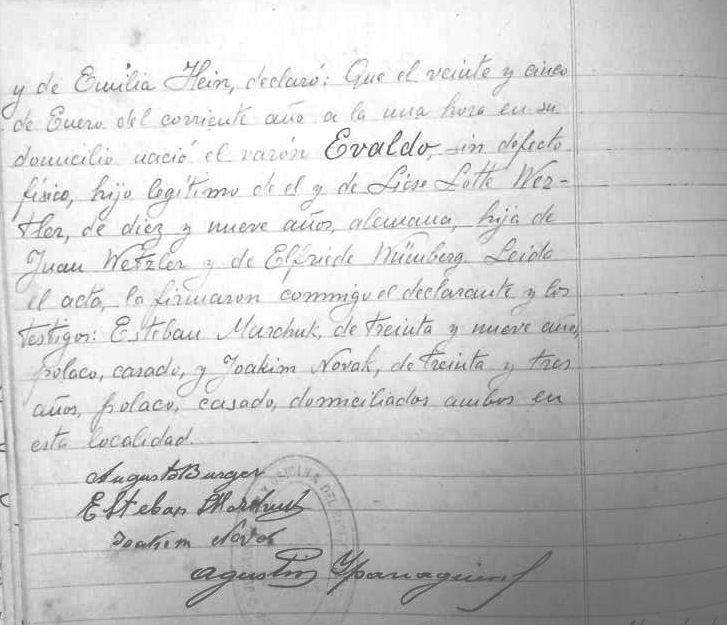 y de Emilia Hein, declaró: Que el veinte y cinco
de Enero del corriente año a la una hora en su
domicilio nació el varón Evaldo, sin defecto
físico, hijo legítimo de el y de Liese Lotte Wez-
tler, de diez y nueve años, alemana, hija de
Juan Wetzler y de Elfriede Wümberg. Leida
el acta, la firmaron conmigo el declarante y los
testigos: Esteban Marchuk, de treinta y nueve años,
polaco, casado, y Joakim Novak, de treinta y tres
años, polaco, casado, domiciliados ambos en
esta localidad.
Augusto Burger
Esteban Marchuk
Joakim Novak
Agustin